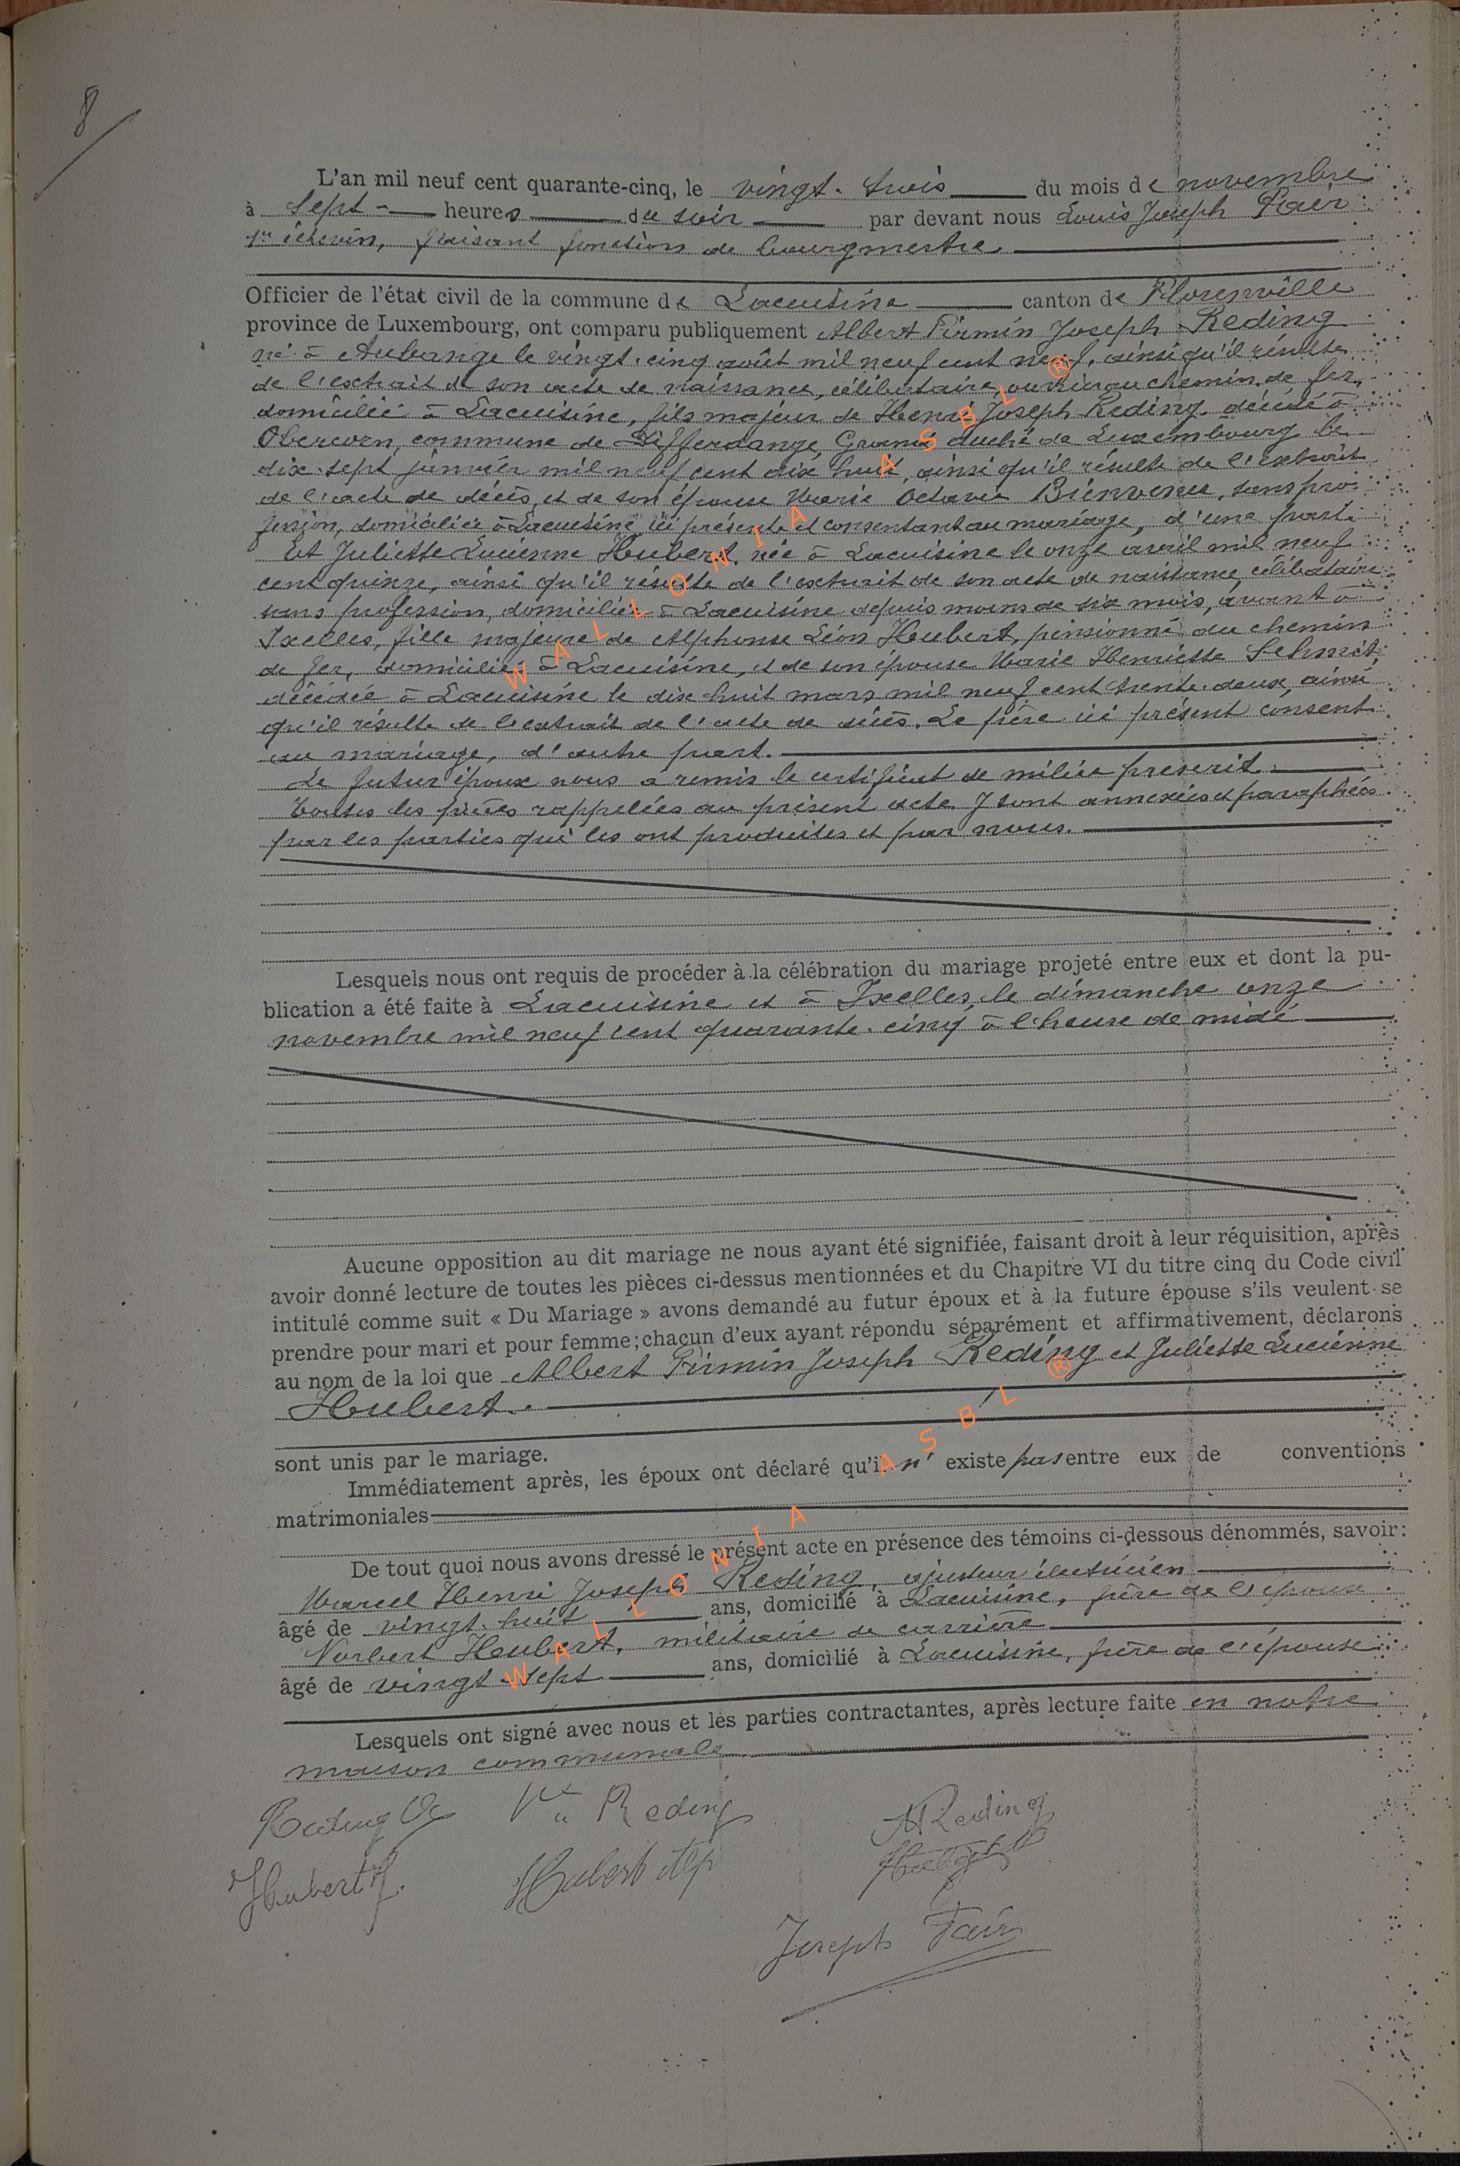 8
L'an mil neuf cent quarante-cinq, le vingt-trois du mois de novembre
à sept heures du soir par devant nous Louis Joseph Fair
1er échevin, faisant fonction de bourgmestre
Officier de l'état civil de la commune de Lacuisine canton de Florenville
province de Luxembourg, ont comparu publiquement Albert Firmin Joseph Reding
né à Aubange le vingt-cinq août mil neuf cent neuf, ainsi qu'il résulte
de l'extrait de son acte de naissance, célibataire, ouvrier au chemin de fer,
domicilié à Lacuisine, fils majeur de Henri Joseph Reding décédé à
Obercorn, commune de Differdange, Grand duché de Luxembourg le
dix-sept janvier mil neuf cent dix huit, ainsi qu'il résulte de l'extrait
de l'acte de décès, et de son épouse Marie Octavie Bienvenu, sans pro-
fession, domiciliée à Lacuisine, ici présente et consentant au mariage, d'une part.
Et Juliette Lucienne Hubert, née à Lacuisine le onze avril mil neuf
cent quinze, ainsi qu'il résulte de l'extrait de son acte de naissance, célibataire
sans profession, domiciliée à Lacuisine depuis moins de six mois, avant à
Ixelles, fille majeure de Alphonse Léon Hubert, pensionné du chemin
de fer, domicilié à Lacuisine, et de son épouse Marie Henriette Schmit,
décédée à Lacuisine le dix huit mars mil neuf cent trente-deux, ainsi
qu'il résulte de l'extrait de l'acte de décès. Le père ici présent consent
au mariage, d'autre part.
Le futur époux nous a remis le certificat de milice prescrit.
Toutes les pièces rappelées au présent acte y sont annexées et paraphées
par les parties qui les ont produites et par nous.
Lesquels nous ont requis de procéder à la célébration du mariage projeté entre eux et dont la pu-
blication a été faite à Lacuisine et à Ixelles, le dimanche onze
novembre mil neuf cent quarante-cinq à l'heure de midi
Aucune opposition au dit mariage ne nous ayant été signifiée, faisant droit à leur réquisition, après
avoir donné lecture de toutes les pièces ci-dessus mentionnées et du Chapitre VI du titre cinq du Code civil
intitulé comme suit « Du Mariage » avons demandé au futur époux et à la future épouse s'ils veulent se
prendre pour mari et pour femme; chacun d'eux ayant répondu séparément et affirmativement, déclarons
au nom de la loi que Albert Firmin Joseph Reding et Juliette Lucienne
Hubert.
sont unis par le mariage.
Immédiatement après, les époux ont déclaré qu'il n'existe pas entre eux de conventions
matrimoniales
De tout quoi nous avons dressé le présent acte en présence des témoins ci-dessous dénommés, savoir:
Marcel Henri Joseph Reding, ajusteur électricien
âgé de vingt-huit ans, domicilié à Lacuisine, frère de l'époux
Norbert Hubert, militaire de carrière
âgé de vingt-sept ans, domicilié à Lacuisine, frère de l'épouse
Lesquels ont signé avec nous et les parties contractantes, après lecture faite en notre
maison communale
Reding Vve Reding AReding
Hubert Hubert Alp
Joseph Fair
WALLONIA ASBL ®
WALLONIA ASBL ®